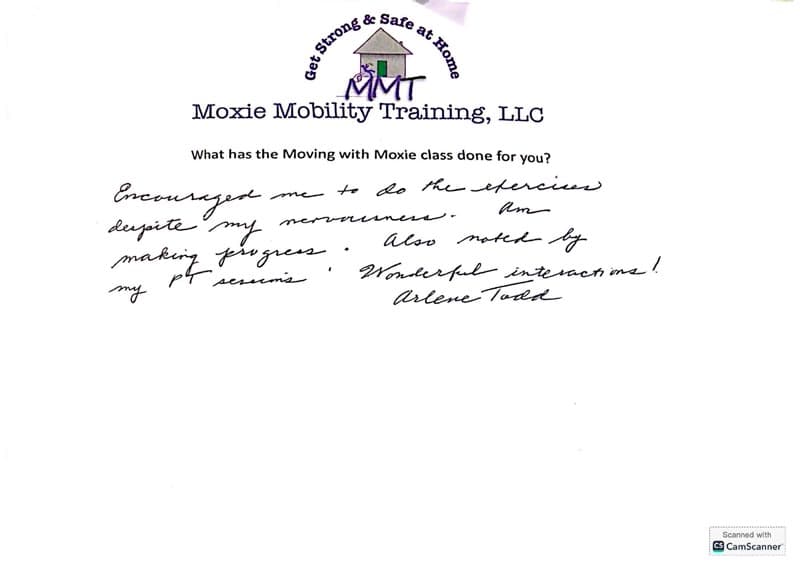 Get Strong & Safe at Home
MMT
Moxie Mobility Training, LLC
What has the Moving with Moxie class done for you?
Encouraged me to do the exercises
despite my nervousness. Am
making progress. Also noted by
my PT sessions. Wonderful interactions!
Arlene Todd
Scanned with
CS CamScanner